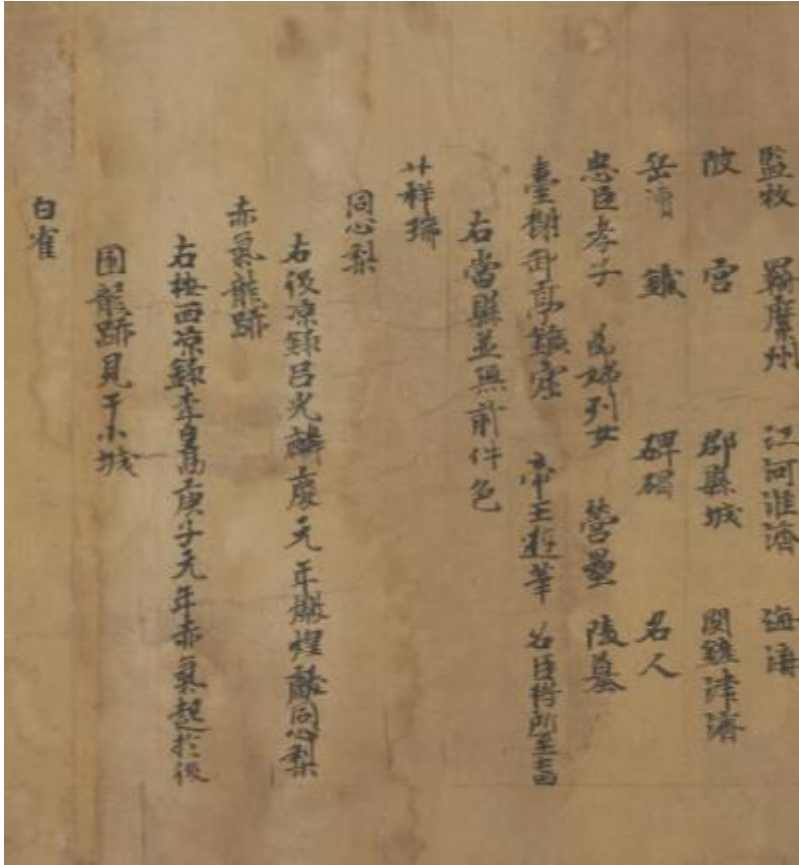 監牧 羈縻州 江河淮濟 海溝
陂 宮 郡縣城 關鏂津濟
岳瀆 鐵 碑碣 名人
忠臣孝子 節婦列女 營壘 陵墓
臺榭郵亭鑛窟 帝王遊幸 名臣將所至 屯田
右當縣並無前件色
廿祥瑞
同心梨
右後涼錄呂光麟慶元年燉煌獻同心梨
赤氣龍跡
右按西涼錄李暠庚子元年赤氣起於後
園龍跡見于小城
白雀